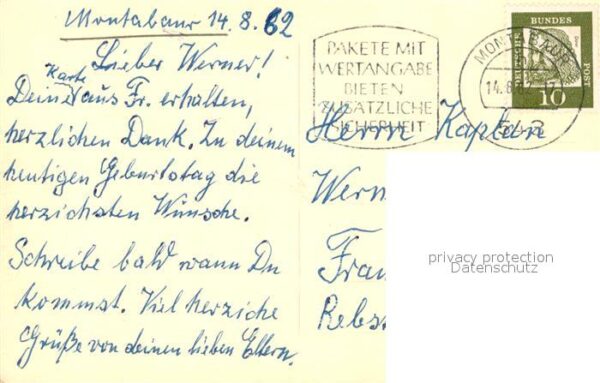 Montabaur 14.8.62
Lieber Werner!
Deine Karte aus Fr. erhalten,
herzlichen Dank. Zu deinem
heutigen Geburtstag die
herzichsten Wünsche.
Schreibe bald wann Du
kommst. Viel herziche
Grüße von deinen lieben Eltern.
PAKETE MIT
WERTANGABE
BIETEN
ZUSÄTZLICHE
SICHERHEIT
MONTABAUR
14.8.62
DEUTSCHE
BUNDES
POST
10
Herrn Kaplan
Wern
Fran
Rebs
privacy protection
Datenschutz